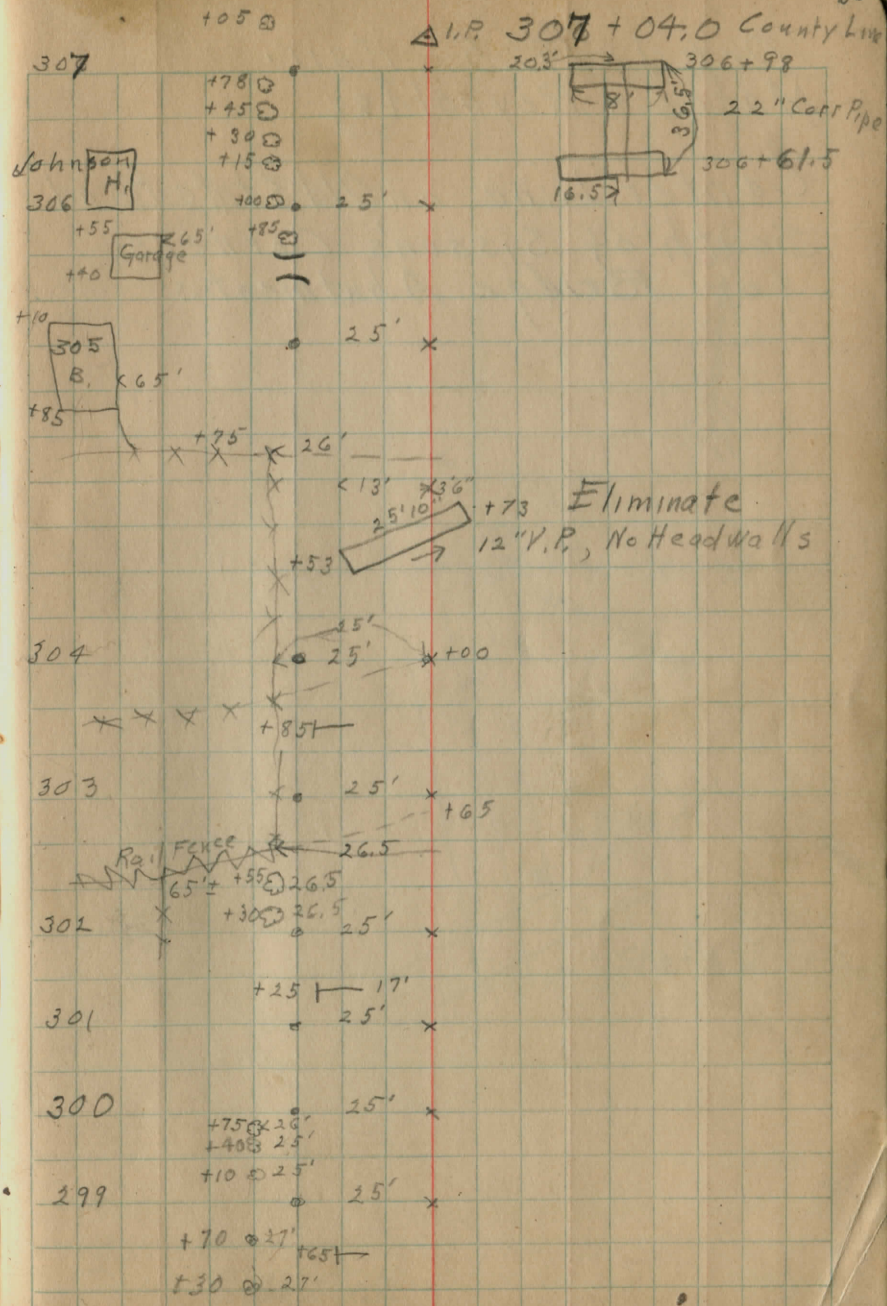 +05 △ I.P. 307 + 04.0 County Line
307 20.3' 306+98
+78
+45 8' 36.5' 22" Corr Pipe
+30
Johnson H. +15 306+61.5
306 +00 25' 16.5
+55 65' +85
Garage
+40
+10
305 25'
B. 65'
+85
+75 26'
13' 3'6"
25'10" +73 Eliminate
12" V.P., No Headwalls
+53
25'
304 25' +00
+85
303 25'
+65
Rail Fence 26.5
65'± +55 26.5
+30 26.5
302 25'
+25 17'
301 25'
300 25'
+75 26'
+40 25'
+10 25'
299 25'
+70 27'
+65
+30 27'